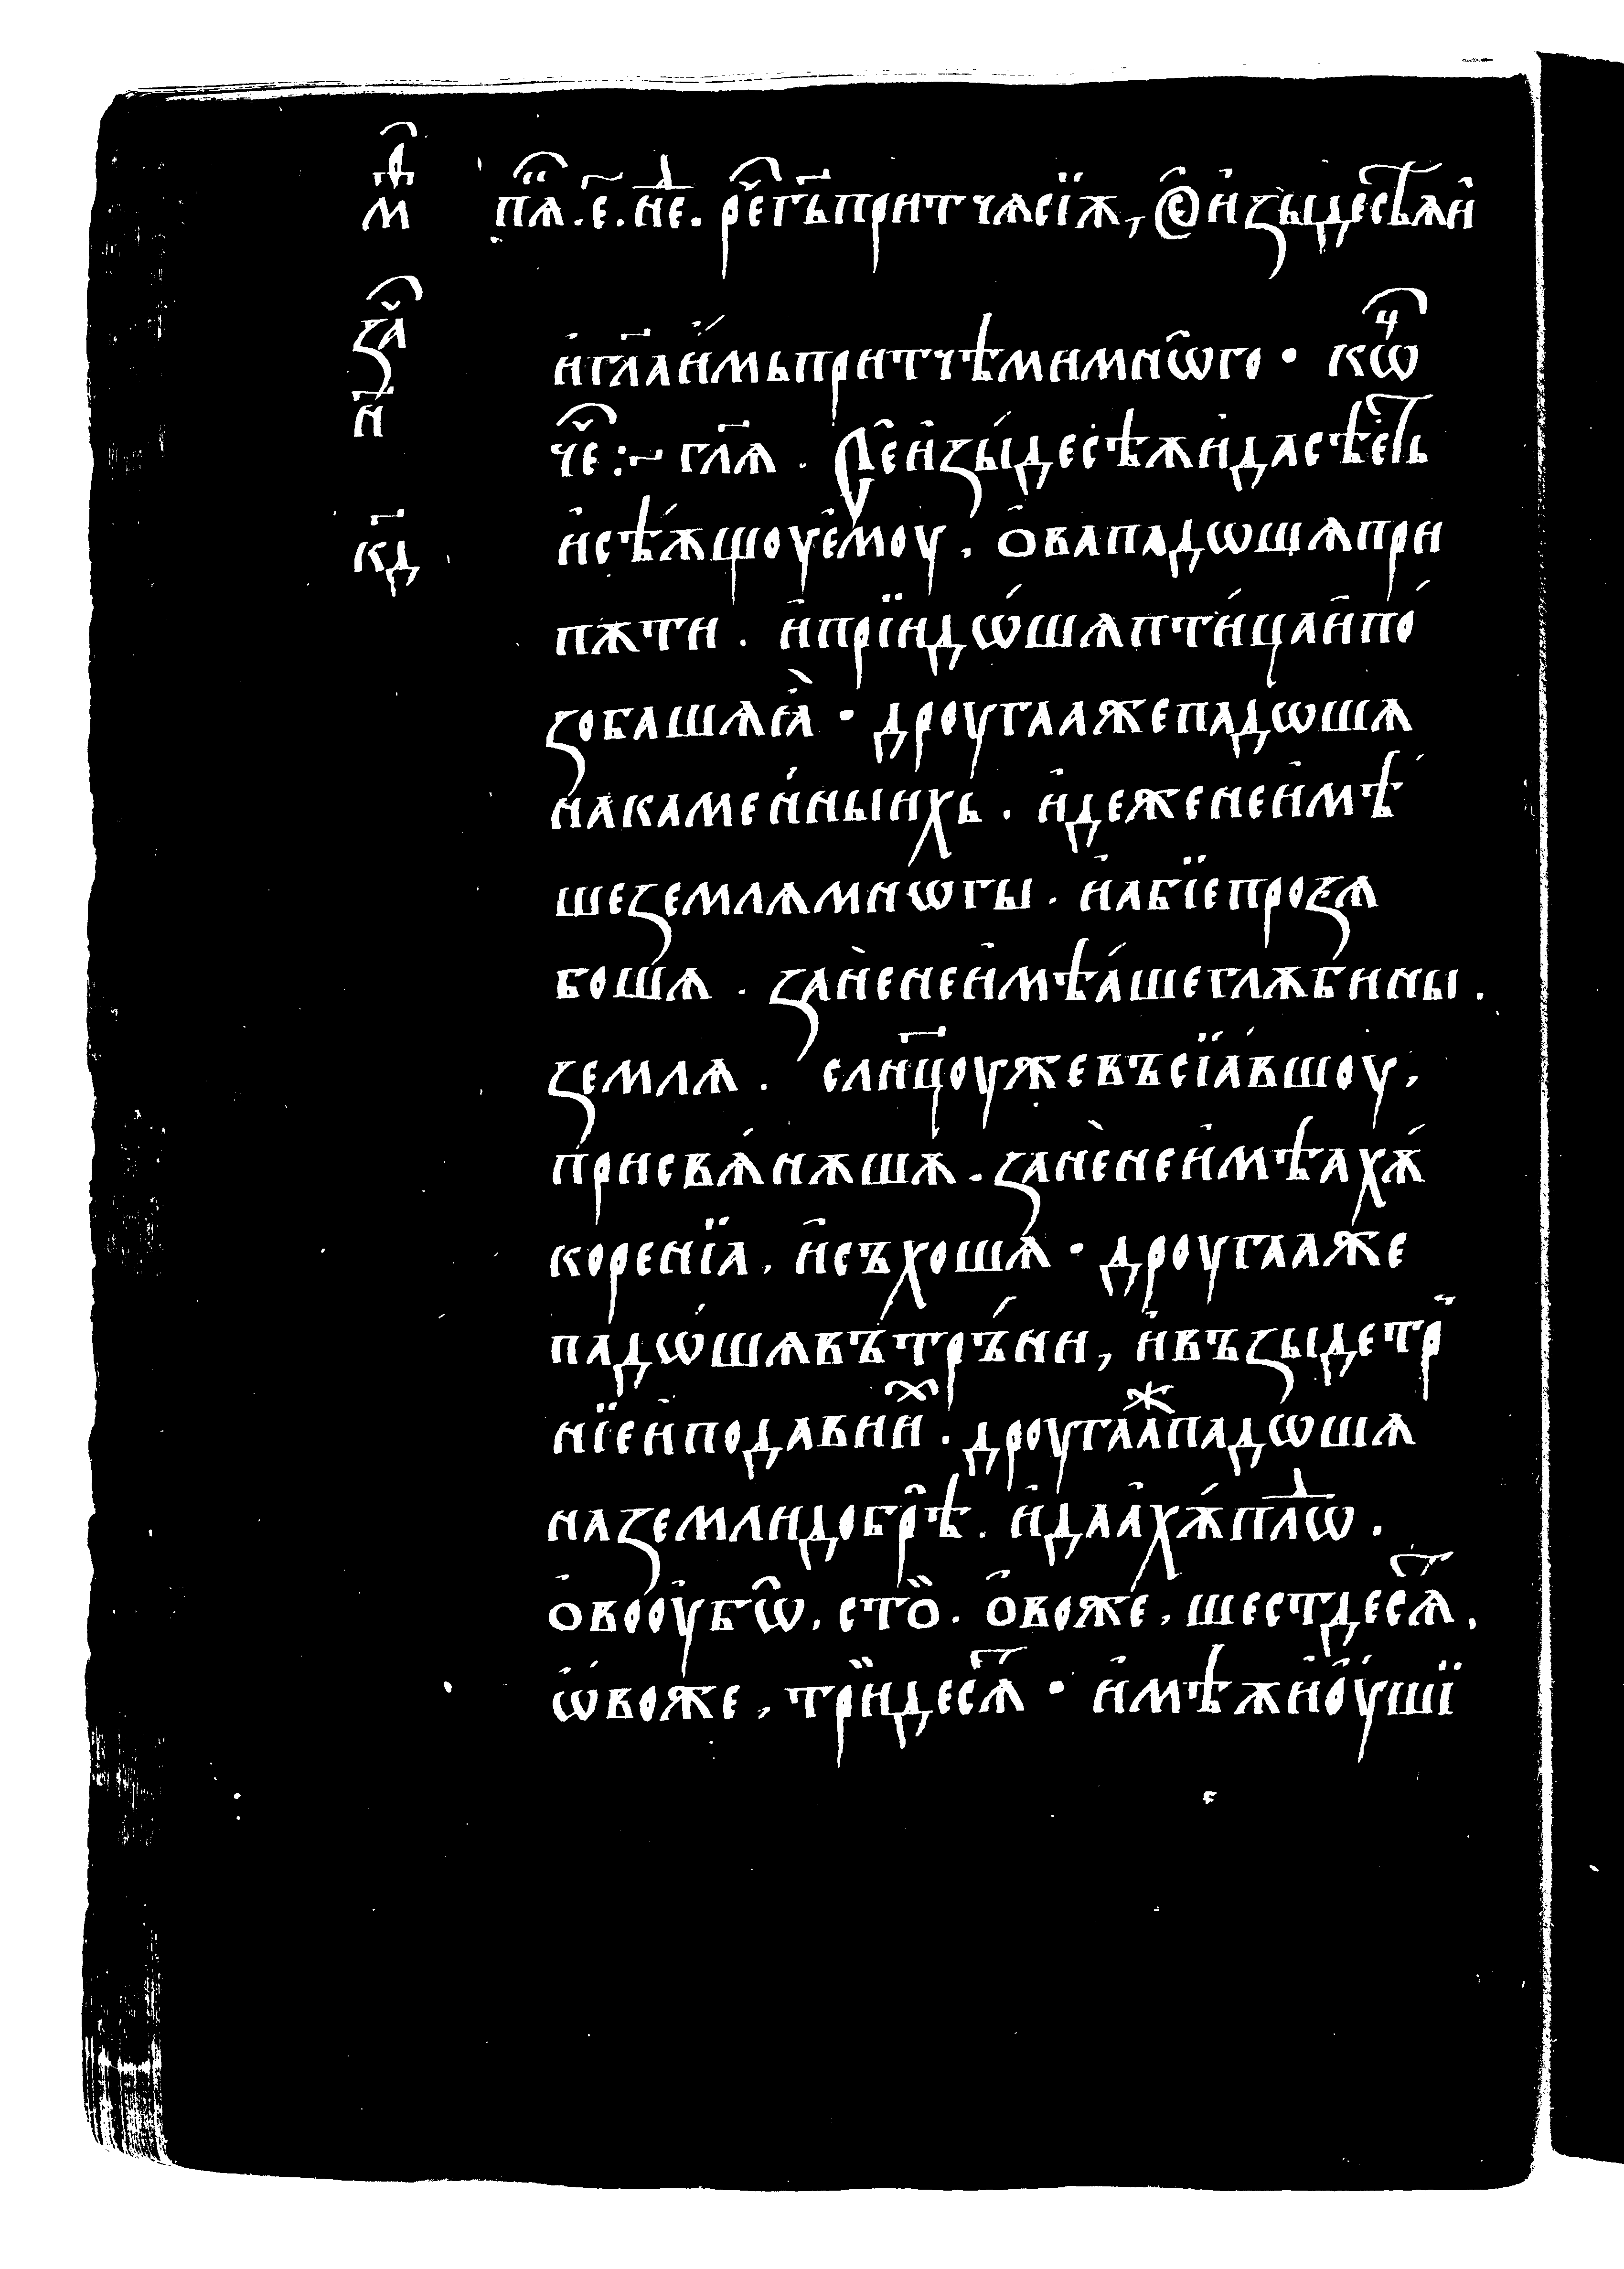 м҃д
пѧ҃ . є҃ . нєⷣ . рє҇ г҃ь притчѫ сїѫ , Ѻ҆ изыдє сѣѧи
за҇
и҃
и҆ гл҃а и҆мь притчѣми мнѡ҆го · коⷱ҇
че҇ :~ гл҃ѧ . Се и҆зы́де сѣѫи да сѣеⷮь
к҃д
и҆ сѣѫ́щоу є҆моу . ѻ҆ва падѡшѧ при
пѫти . и҆ прїидѡ́шѧ пти́цѧ и҆ по́
зобашѧ ꙗ҆̀ · дроугаа же падѡшѧ
на камен́ныихь . и҆деже не и҆мѣ́
ше землѧ мнѡгы . и҆ абїе прозѧ
бошѧ . зане́ не и҆мѣа́ше глѫбины .
землѧ . слн҃цоу же въсїа́вшоу ,
присвѧ́нѫшѧ . занѐ не и҆мѣахѫ́
коренїа , и҆ съхошѧ́ · дроугаа́ же
падѡ́шѧ въ тръ́ни , и҆ възыде тръ
нїе и҆ подави иⷯ . дроугааⷤ падѡшѧ
на земли добрѣ . и҆ даа҆хѫ́ плѡⷣ .
ѻ҆во оу҆бѡ҆ , сто̀ . ѻ҆во же , шестдесѧⷮ ,
ѡ҆́во же , три̏десѧⷮ · и҆мѣѫи о҆у́ши